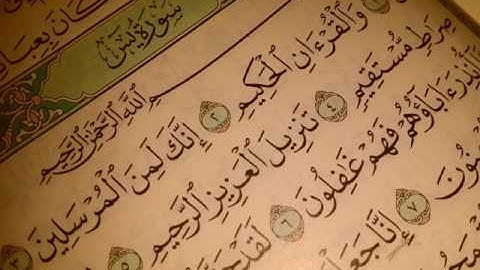 كَانَ بِعِبَا
سُورَةُ يسٓ
بِسْمِ ٱللَّهِ ٱلرَّحْمَٰنِ ٱلرَّحِيمِ
١ وَٱلْقُرْءَانِ ٱلْحَكِيمِ ٢ إِنَّكَ لَمِنَ ٱلْمُرْسَلِينَ ٣
صِرَٰطٍ مُّسْتَقِيمٍ ٤ تَنزِيلَ ٱلْعَزِيزِ ٱلرَّحِيمِ ٥
أُنذِرَ ءَابَآؤُهُمْ فَهُمْ غَٰفِلُونَ ٦ لَقَدْ حَقَّ
٧ إِنَّا جَعَلْ